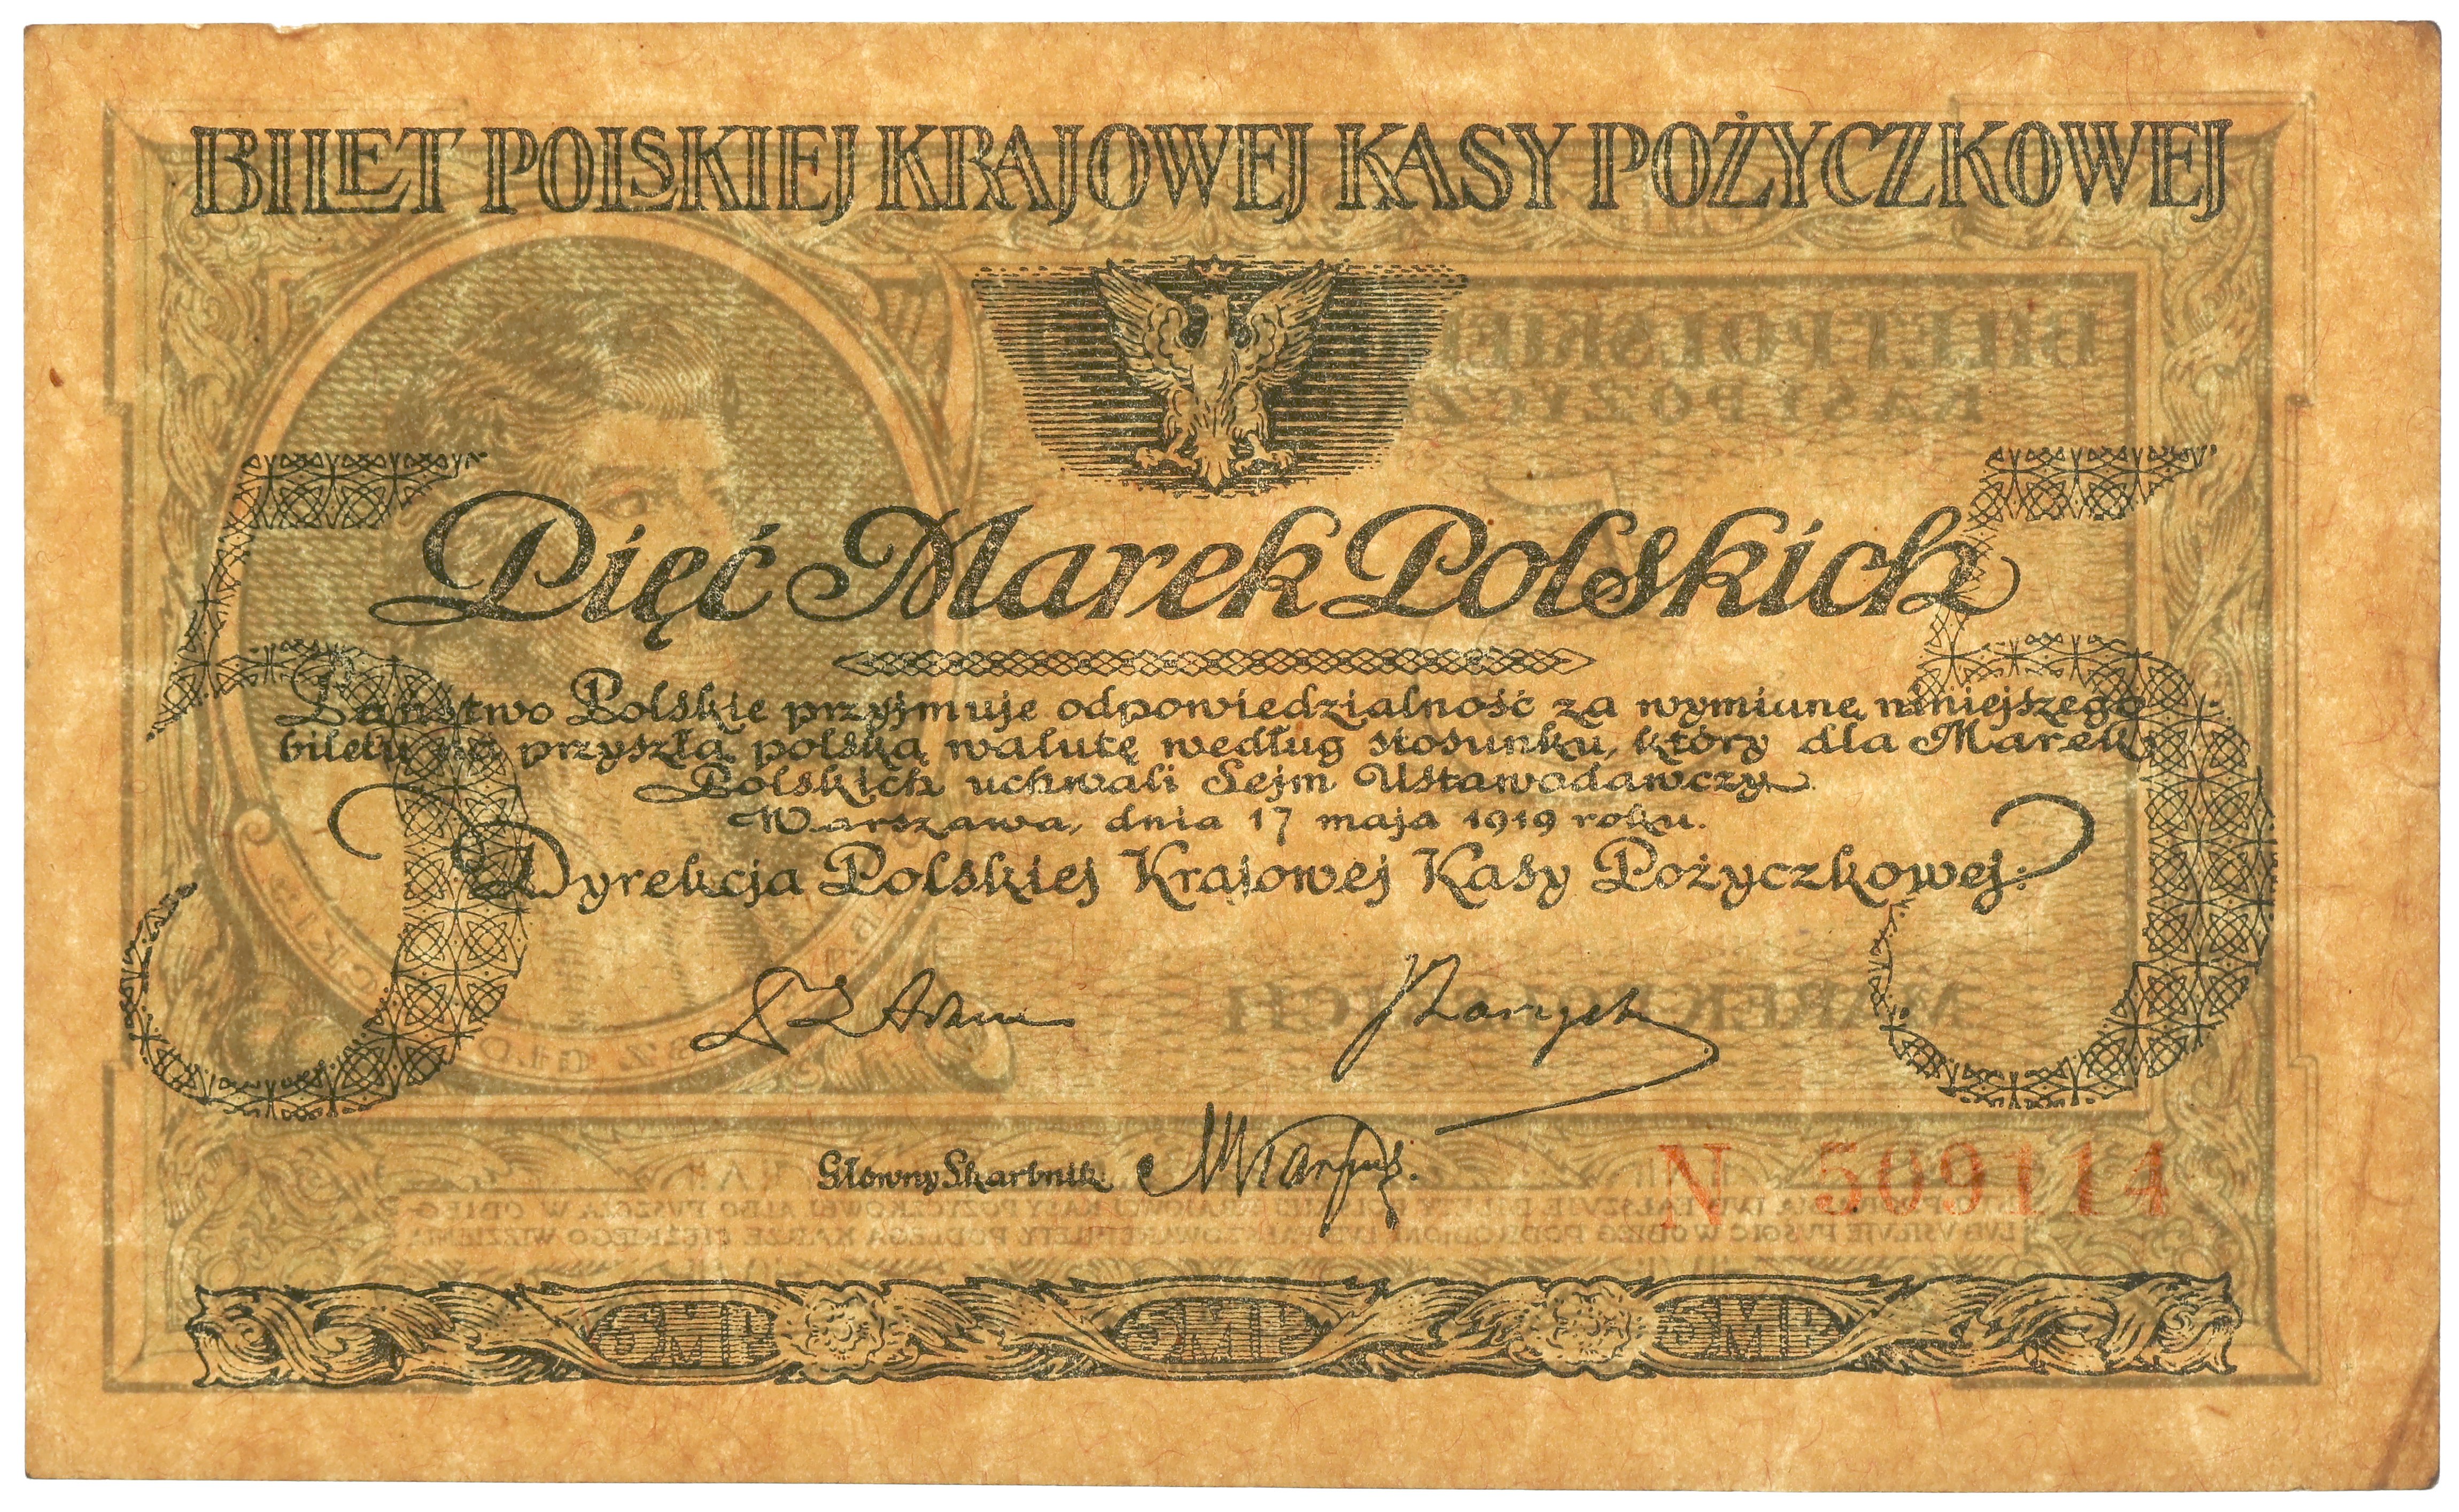 BILET POLSKIEJ KRAJOWEJ KASY POŻYCZKOWEJ
5 Pięć Marek Polskich 5
Państwo Polskie przyjmuje odpowiedzialność za wymianę niniejszego
biletu na przyszłą polską walutę według stosunku, który dla Marek
Polskich uchwali Sejm Ustawodawczy.
Warszawa, dnia 17 maja 1919 roku.
Dyrekcja Polskiej Krajowej Kasy Pożyczkowej:
Główny Skarbnik
N 509114
5MP 5MP 5MP